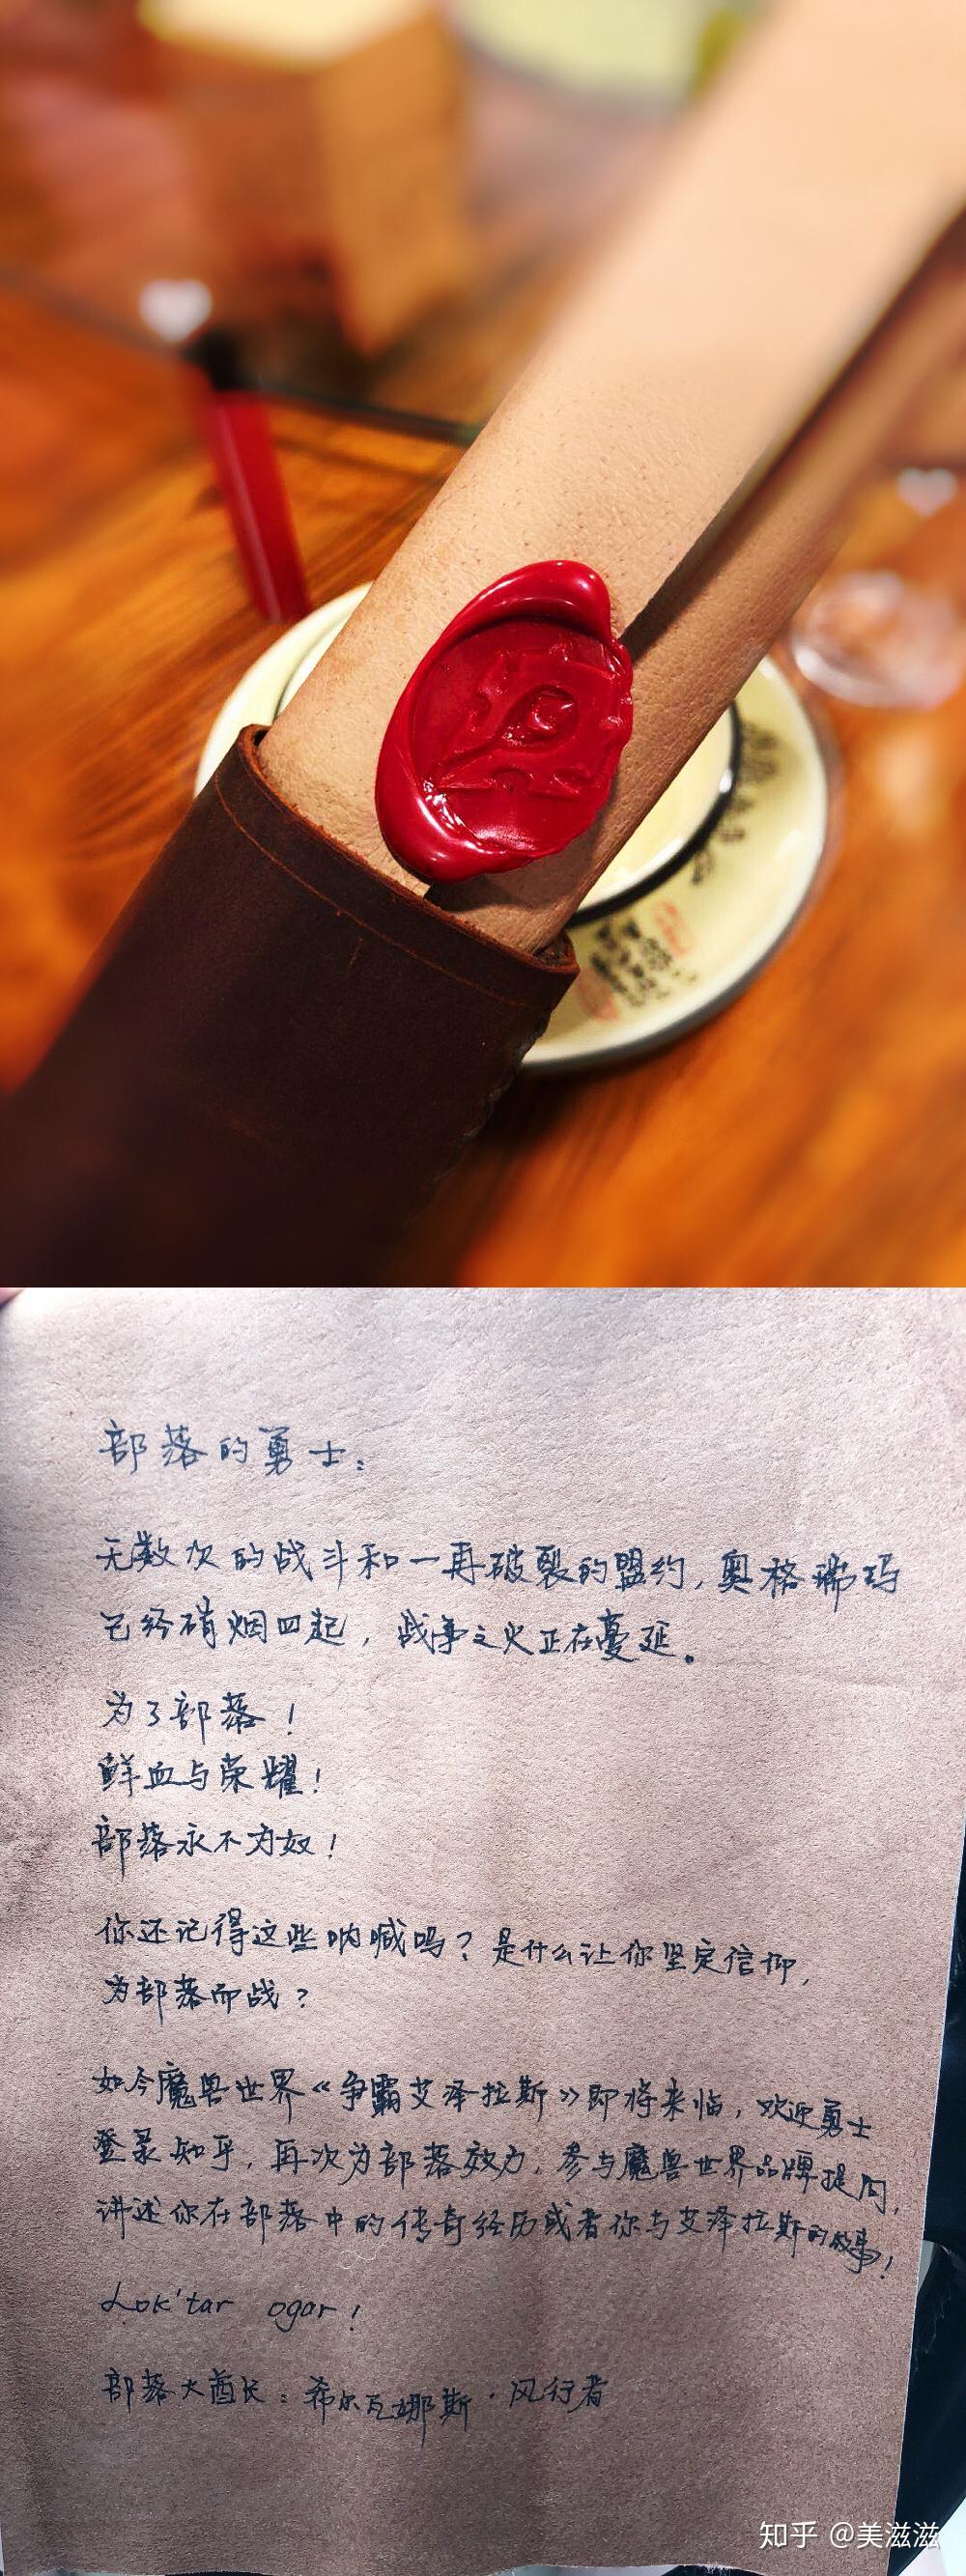 部落的勇士：
无数次的战斗和一再破裂的盟约，奥格瑞玛
已经硝烟四起，战争之火正在蔓延。
为了部落！
鲜血与荣耀！
部落永不为奴！
你还记得这些呐喊吗？是什么让你坚定信仰，
为部落而战？
如今魔兽世界《争霸艾泽拉斯》即将来临，欢迎勇士
登录知乎，再次为部落效力，参与魔兽世界品牌提问，
讲述你在部落中的传奇经历或者你与艾泽拉斯的故事！
Lok'tar ogar！
部落大酋长：希尔瓦娜斯·风行者
知乎 @美滋滋